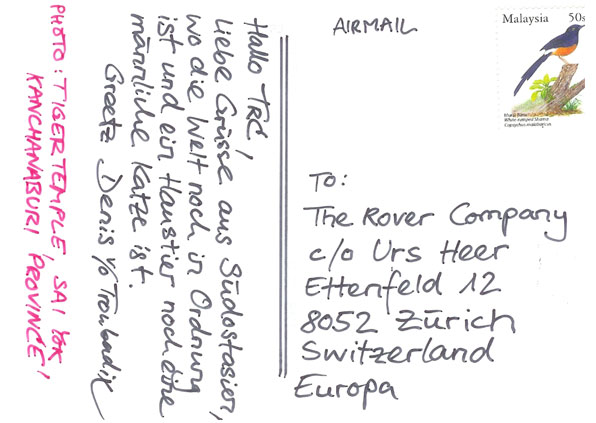 AIRMAIL
Malaysia 50s
White-rumped Shama
Copsychus malabaricus
Hallo TRC,
Liebe Grüsse aus Südostasien,
wo die Welt noch in Ordnung
ist und ein Haustier noch eine
männliche Katze ist.
Greetz Denis Troubadix
PHOTO: TIGER TEMPLE, SAI YOK
KANCHANABURI PROVINCE!
To:
The Rover Company
c/o Urs Heer
Ettenfeld 12
8052 Zürich
Switzerland
Europa